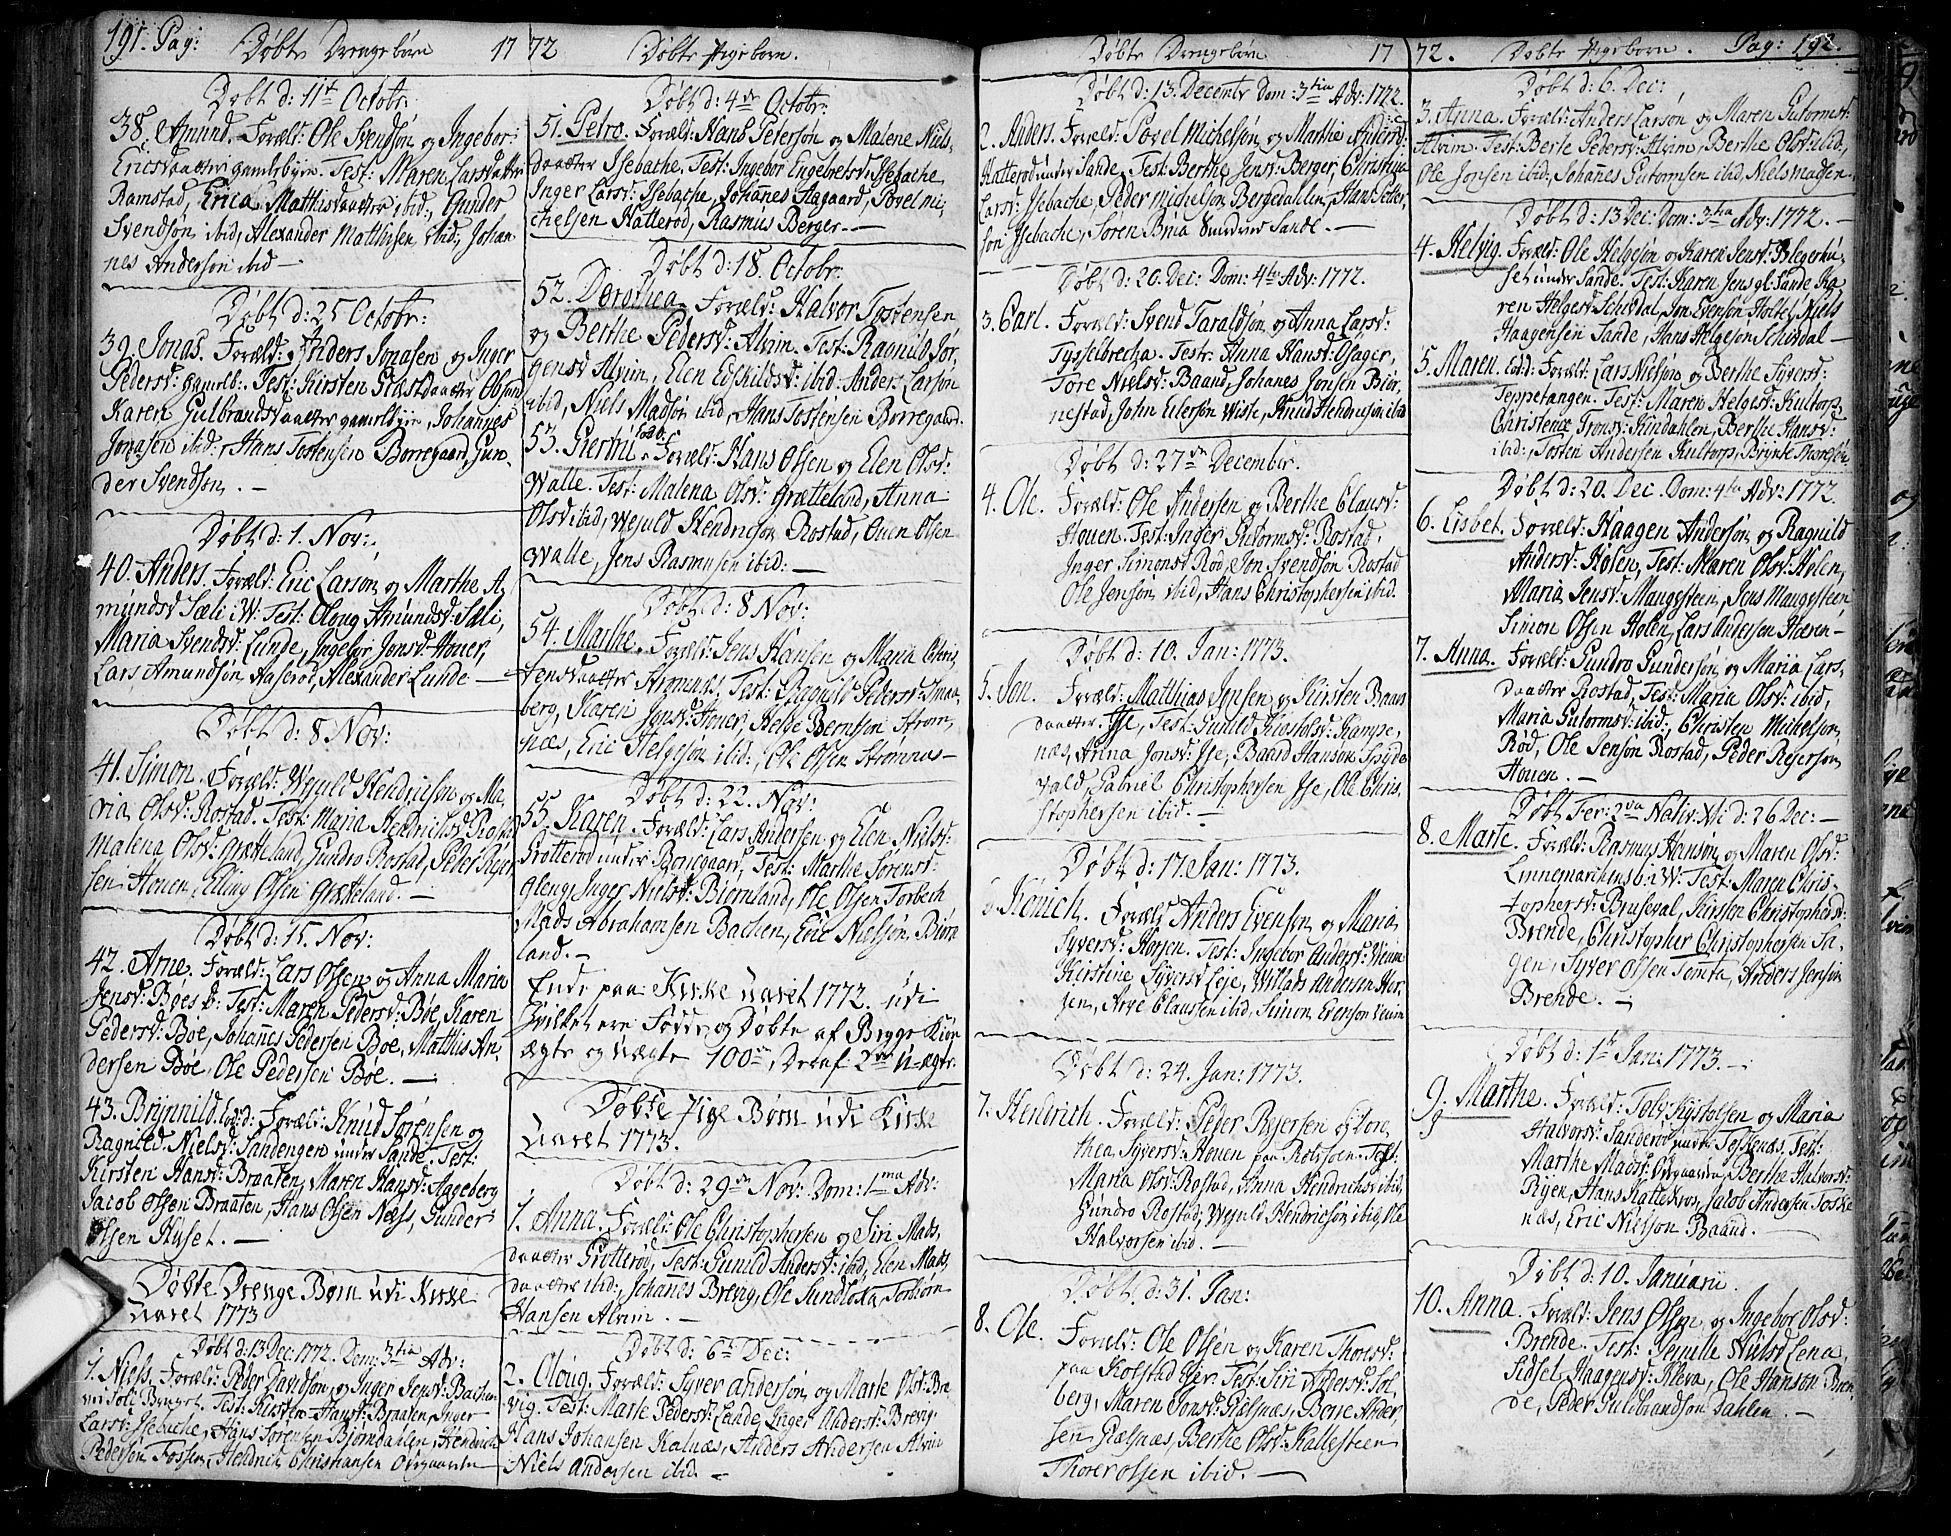 191. Pag: Døbte Drengebørn 17
Døbt d: 11te Octobr:
38. Amund. Foræld: Ole Svendsøn og Ingebor
Ericsdaatter gamlebyen. Test: Maren Larsdaatter
Ramstad, Erica Matthisdaatter ibid:, Gunder
Svendsøn ibid, Alexander Matthisen ibid:, Johan-
nes Andersøn ibid —
Døbt d: 25 Octobr:
39. Jonas. Foræld: Anders Jonasen og Inger
Pedersd: gamleb: Test: Kirsten
Karen Gulbrandsdaatter gamlebyen, Johannes
Jonasen ibid:, Hans Tostensen Borregaard, Gun-
der Svendsøn. —
Døbt d: 1. Nov:
40. Anders. Foræld: Eric Larsøn og Marthe A-
mundsd Sæli i W: Test: Oloug Amundsd: Sæli,
Maria Svendsd: Lunde, Ingebor Jonsd: Houer,
Lars Amundsøn Aaserød, Alexander Lunde —
Døbt d: 8 Nov:
41. Simon. Foræld: Wejuld Hendricsøn og Ma-
ria Olsd: Rostad. Test: Maria Hendrichsd Rostad
Malena Olsd: Grætteland, Gundro Rostad, Peder Rejer-
sen Houen, Elling Olsen Grætteland. —
Døbt d: 15. Nov:
42. Arne. Foræld: Lars Olsen og Anna Maria
Jensd: Bøes b: Test: Maren Pedersd: Bøe, Karen
Pedersd: Bøe, Johannes Pedersen Bøe, Matthis An-
dersen Bøe, Ole Pedersen Bøe. —
43. Brynnild. Foræld: Knud Sørensen og
Ragnild Nielsd: Sandengen under Sande. Test:
Kirsten Hansd: Braaten, Maren Hansd: Hageberg
Jacob Olsen Braaten, Hans Olsen Næss, Gunder
Olsen Huset. —
Døbte Drenge Børn udi Kirke
Aaret 1773
Døbt d: 13 Dec: 1772. Dom: 3tia Adv:
1. Niels. Foræld: Peder Davidsøn og Inger Jensd: Bachen
Test: Kirsten Hansd: Braaten, Inger
Larsd: Isebache, Hans Sørensen Bjørndahlen, Hendrich
Pedersøn Fossen, Hendrich Christiansen Overgaarden
72 Døbte Pigebørn.
Døbt d: 4de Octobr:
51. Petro. Foræld: Hans Petersøn og Malene Niels-
daatter Isebache. Test: Ingebor Engebretsd: Isebache
Inger Larsd: Isebache, Johannes Aagaard, Povel Mi-
chelsen Hatterød, Rasmus Berger. —
Døbt d: 18. Octobr:
52. Dorothea. Foræld: Halvor Tostensen
og Berthe Pedersd: Alvim. Test: Ragnild Jør-
gensd Alvim, Elen Edskildsd: ibid: Anders Larsøn
ibid, Niels Madsøn ibid, Hans Tostensen Borregaard.
53. Giertru. Foræld: Hans Olsen og Elen Olsd:
Walle. Test: Malena Olsd: Grætteland, Anna
Olsd ibid, Wejuld Hendricsøn Rostad, Ouen Olsen
Walle, Jens Rasmusen ibid: —
Døbt d: 8 Nov:
54. Marthe. Foræld: Jens Hansen og Maria
tensdaatter Strømnes. Test: Ragnild Pedersd: Smaa-
berg, Karen Jonsd: Houer, Helge Berntsen Strøm-
næs, Eric Helgesøn ibid:, Ole Olsen Strømnes —
Døbt d: 22. Nov:
55. Karen. Foræld: Lars Andersen og Elen Nielsd:
Grotterød under Borregaard, Test: Marthe Sørensd:
Glenge, Inger Nielsd: Biørnland, Ole Olsen Torbech
Mads Abrahamsen Bachen, Eric Nielsøn Biørn-
land. —
Ende paa Kirke Aaret 1772. udi
hvilket ere Fødde og Døbte af Begge Kiøn
ægte og uægte 100de, Deraf 2de U-ægte.
Døbte Pige Børn udi Kirke
Aaret 1773.
Døbt d: 29de Nov: Dom: 1ma Adv:
1. Anna. Foræld: Ole Christophersen og Siri Mads-
daatter Grotterød, Test: Gunild Andersd: ibid, Elen Mats-
daatter ibid:, Johannes Brevig, Ole Sundløka, Torbiørn
Hansen Alvim. —
Døbt d: 6te Dec:
2. Oloug. Foræld: Syver Andersøn og Marte Olsd: Bre-
vig. Test: Marte Pedersd: Lande, Inger Andersd: Brevig
Hans Johansen Kalnæs, Anders Andersen Alvim
Niels Andersen ibid. —
Døbte Drengebørn 17
Døbt d: 13. Decembr Dom: 3tia Adv: 1772.
2. Anders. Foræld: Povel Michelsøn og Marthe Andersd:
Hatterød under Sande, Test: Berthe Jensd: Berger, Christine
Larsd: Isebache, Peder Michelsøn Bergedahlen, Hans Peter-
søn Isebache, Søren Bria Sunder Sande. —
Døbt d: 20. Dec: Dom: 4ta Adv: 1772.
3. Carl. Foræld: Svend Taraldsøn og Anna Larsd:
Tysselbrecha. Testr: Anna Hansd: Opager,
Tore Nielsd: Baand, Johanes Jonsen Biør-
nestad, John Eilersøn Wiste, Knud Hendricsøn ibid
Døbt d: 27de Decembr.
4. Ole. Foræld: Ole Andersen og Berthe Clausd:
Houen. Test: Inger Gutormsd: Rostad,
Inger Simonsd Rød, Jon Svendsøn Rostad
Ole Jensøn ibid, Hans Christophersen ibid.
Døbt d: 10. Jan: 1773.
5. Jon. Foræld: Matthias Jensen og Kirsten Baards-
daatter Ise, Test: Gunild Kristofsd: Kampe-
næs, Anna Jonsd: Ise, Baard Hansøn Spyde-
vald, Gabriel Christophersen Ise, Ole Chris-
stophersen ibid. —
Døbt d: 17. Jan: 1773.
6. Hønich. Foræld Anders Evensen og Maria
Syversd: Horsen. Test: Ingebor Andersd: Venim
Kirstine Syversd Leje, Willads Andersen Hor-
sen, Arve Clausen ibid, Simon Everson Venim
Døbt d: 24. Jan: 1773.
7. Hendrich. Foræld: Peder Rejersen og Doro-
thea Syversd: Houen paa Rolfsøen. Test:
Maria Olsd: Rostad, Anna Hendrichsd ibid,
Gundro Rostad, Wejuld Hendricsøn ibid, Ole
Halvorsen ibid. —
Døbt d: 31. Jan:
8. Ole. Foræld: Ole Olsen og Karen Thoresd:
paa Kolstad Test: Siri Andersd: Sol-
berg, Maren Jonsd: Gælsnæs, Borre Ander-
sen Gælsnæs, Berthe Olsd: Kallesteen
Thorer Olsen ibid. —
72. Døbte Pigebørn. Pag: 192.
Døbt d: 6. Dec:
3. Anna. Foræld: Anders Larsøn og Maren Gutormsd:
Alvim. Test: Berte Pedersd: Alvim, Berthe Olsd: ibid,
Ole Jonsen ibid:, Johannes Gutormsen ibid, Niels Madsen
Døbt d: 13 Dec: Dom: 3tia Adv: 1772. —
4. Helvig. Foræld: Ole Helgesøn og Karen Jensd: Blegerhu-
set under Sande. Test: Karen Jens gl: Sande, Ka-
ren Helgesd: Schisdal, Jon Evensøn Holte, Niels
Haagensen Sande, Hans Helgesøn Schisdal —
5. Maren. Foræld: Lars Nielsøn og Berthe Syversd:
Teppetangen. Test: Maren Helgesd: Kultorp,
Christence Tronsd: Kindahlen, Berthe Hansd:
ibid:, Tosten Andersen Kultorp, Brynte Thoresen
Døbt d: 20. Dec. Dom: 4ta Adv: 1772.
6. Lisbet. Foræld: Haagen Andersøn og Ragnild
Andersd: Holen, Test: Maren Olsd: Holen,
Maria Jensd: Mangesteen, Jens Maugesteen
Simon Olsen Holen, Lars Andersen Haren —
7. Anna. Foræld: Gundro Gundersøn og Maria Lars-
daatter Rostad, Test: Maria Olsd: ibid,
Maria Gutormsd: ibid:, Christen Michelsøn
Rød, Ole Jensøn Rostad, Peder Rejersøn
Houen. —
Døbt Fer: 2da Nativ: Xti d: 26 Dec: —
8. Marte. Foræld: Rasmus Hansøn og Maren Olsd:
Linnemarchens b: i W: Test: Maren Chris-
tophersd: Bruseval, Kirsten Christophersd:
Brende, Christopher Christophersen Sa-
gen, Syver Olsen Tomta, Anders Jensen
Brende. —
Døbt d: 1te Jan: 1773. —
9. Marthe. Foræld: Tolv Kystolsen og Maria
Halvorsd: Sanderød under Toskenæs, Test:
Marthe Madsd: Overgaarden, Berthe Halvorsd:
Rijen, Hans Hattedvos, Jacob Andersen Toske-
næs, Eric Nielsøn Baand. —
Døbt d: 10. Januarii
10. Anna. Foræld: Jens Olsen og Ingebor Olsd:
Brende. Test: Pernille Nielsd Lena,
Sidsel Haagensd: Kleva, Ole Hansøn Bren-
de, Peder Guldbrandsøn Dahlen. —